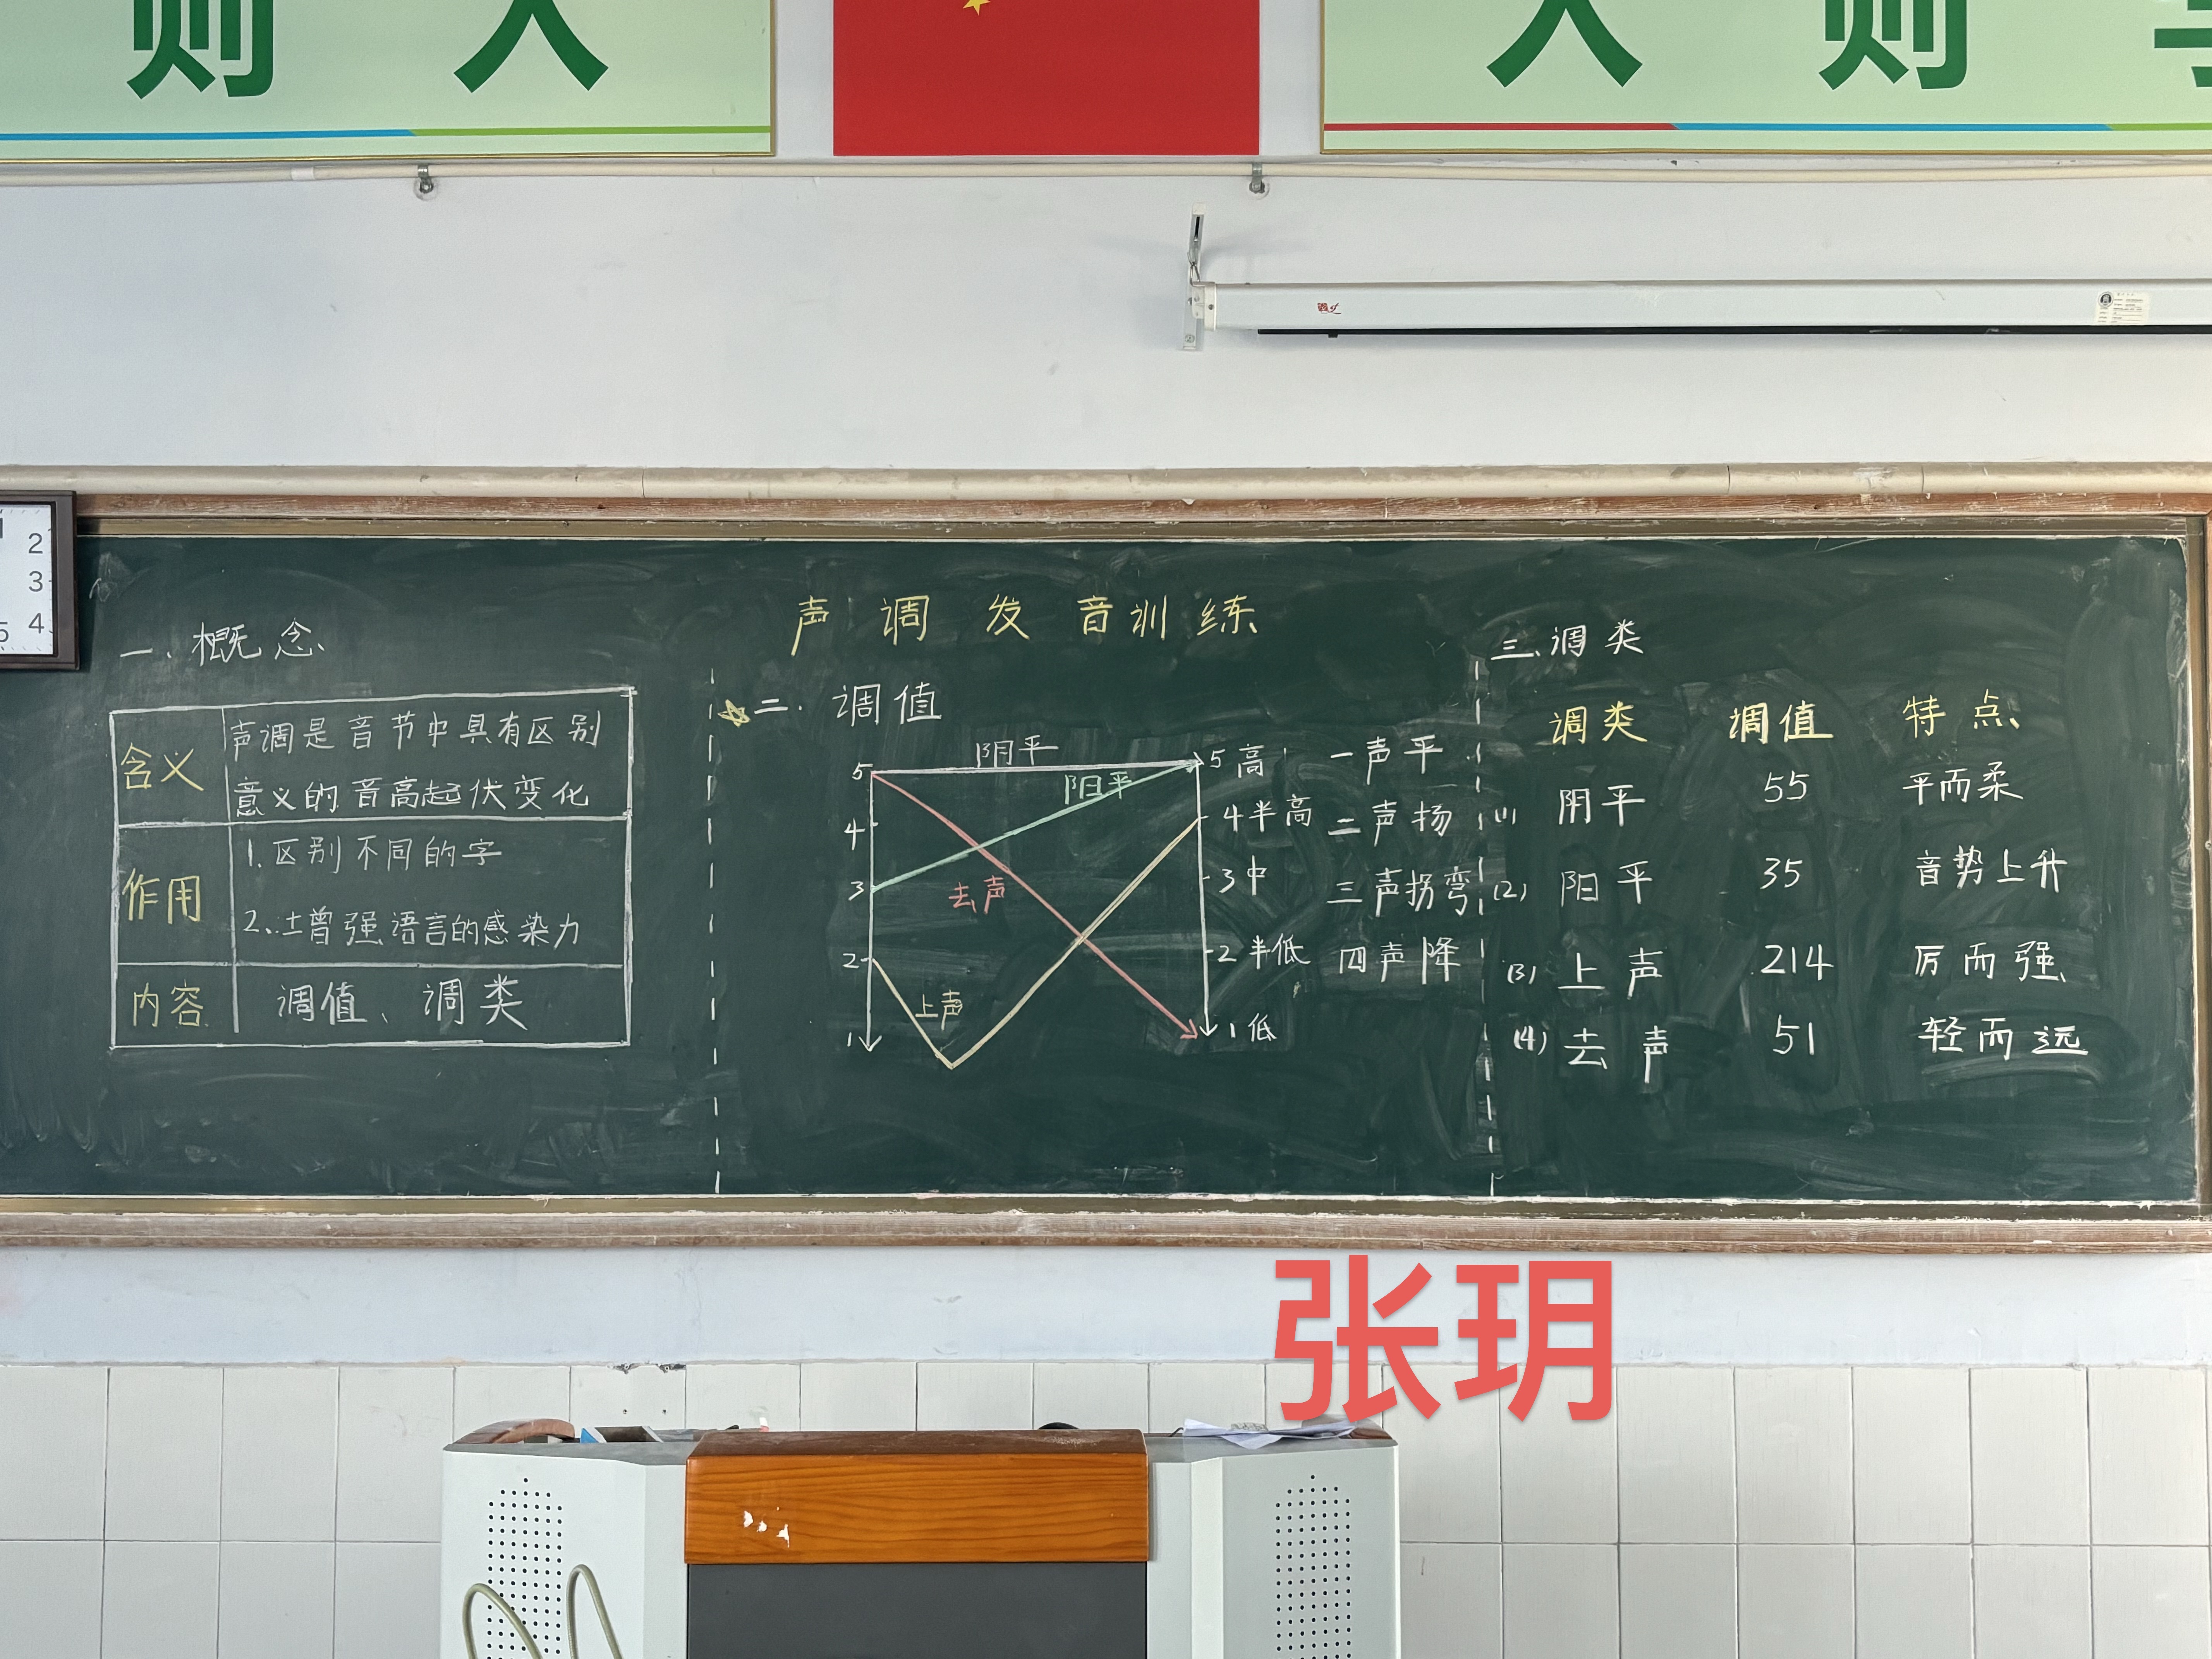 则 人
人 则
2
3
4
5
声调发音训练
一、概念
含义 声调是音节中具有区别
意义的音高起伏变化
作用 1.区别不同的字
2.增强语言的感染力
内容 调值、调类
二.调值
阴平
阳平
去声
上声
5
4
3
2
1
5高
4半高
3中
2半低
1低
一声平
二声扬
三声拐弯
四声降
三、调类
调类 调值 特点
(1) 阴平 55 平而柔
(2) 阳平 35 音势上升
(3) 上声 214 厉而强
(4) 去声 51 轻而远
张玥